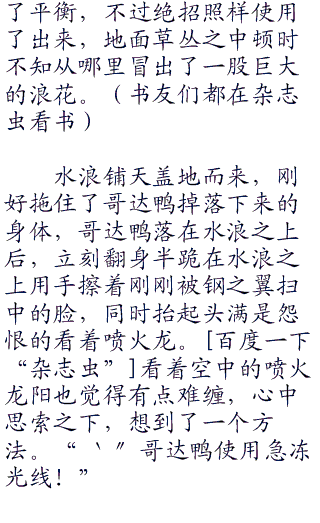 了平衡，不过绝招照样使用
了出来，地面草丛之中顿时
不知从哪里冒出了一股巨大
的浪花。（书友们都在杂志
虫看书）
水浪铺天盖地而来，刚
好拖住了哥达鸭掉落下来的
身体，哥达鸭落在水浪之上
后，立刻翻身半跪在水浪之
上用手擦着刚刚被钢之翼扫
中的脸，同时抬起头满是怨
恨的看着喷火龙。[百度一下
“杂志虫”]看着空中的喷火
龙阳也觉得有点难缠，心中
思索之下，想到了一个方
法。“｀〃哥达鸭使用急冻
光线！”